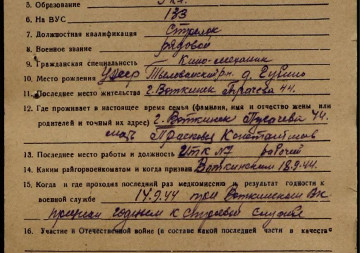 5. Образование 5 кл.
6. На ВУС 133
7. Должностная квалификация Стрелок
8. Военное звание рядовой
9. Гражданская специальность Кино-механик
10. Место рождения Удмур Тыловайский рн. д.
11. Последнее место жительства г. Воткинск 44.
12. Где проживает в настоящее время семья (фамилия, имя и отчество жены или
родителей и точный их адрес) г. Воткинск 44.
мать Прасковья
13. Последнее место работы и должность ИТК №7 рабочий
14. Каким райгорвоенкоматом и когда призван Воткинским 18.9.44.
15. Когда и где проходил последний раз медкомиссию и результат годности к
военной службе 17.9.44 при Воткинском Вк
признан годным к строевой службе
16. Участие в Отечественной войне (в составе какой последней части и в качестве